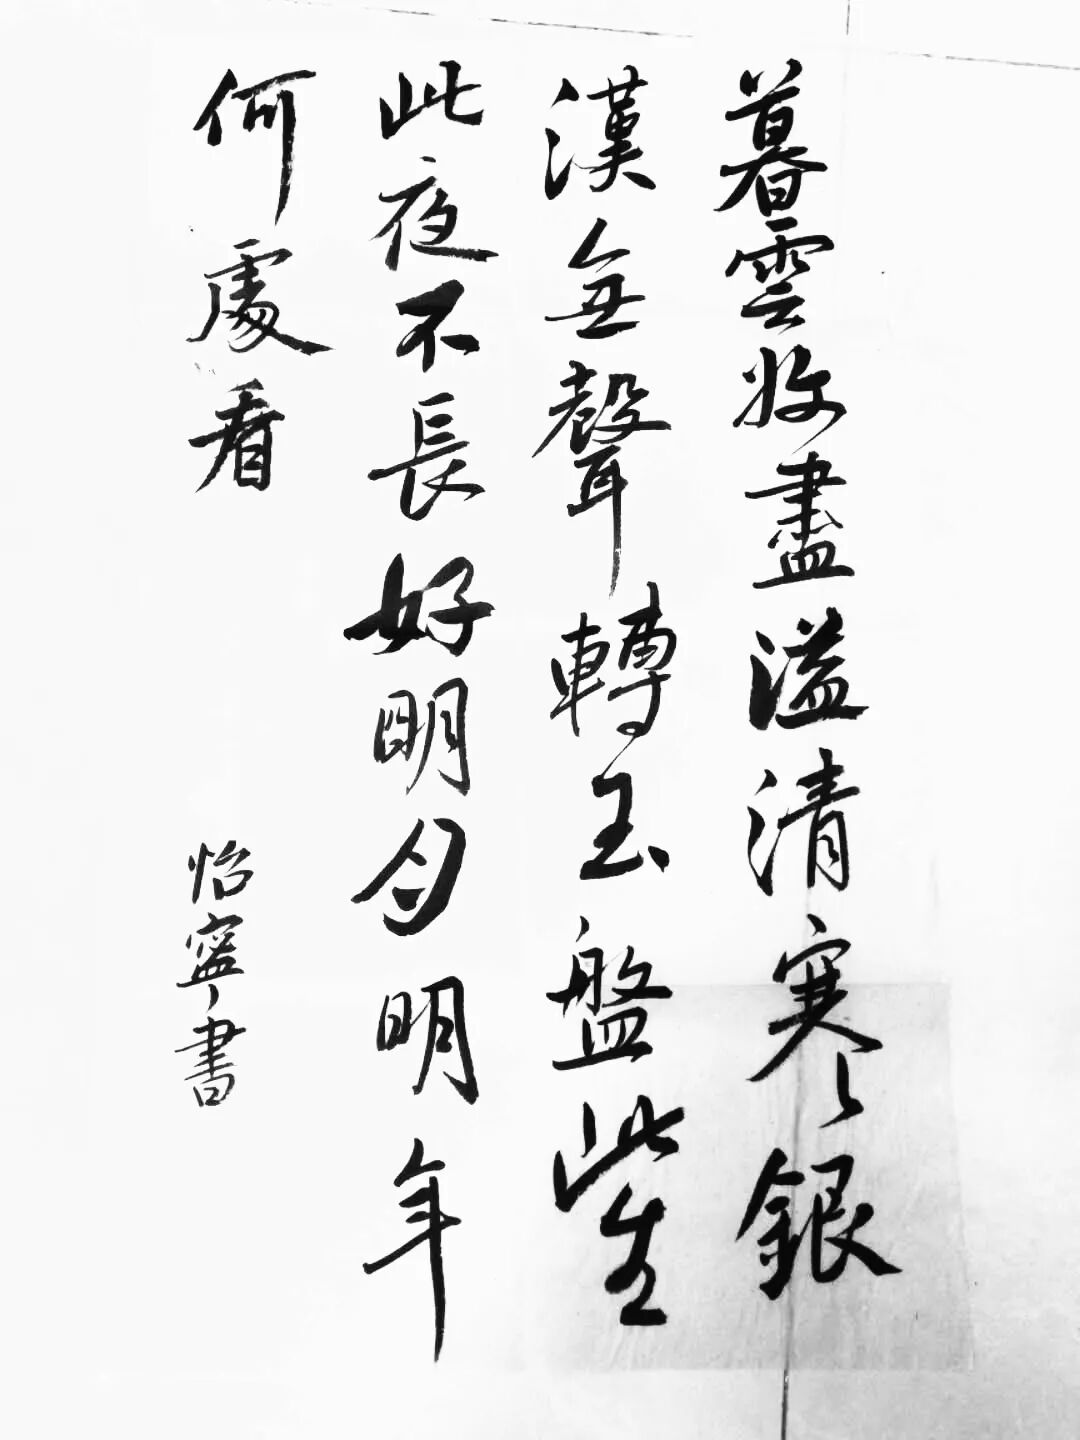 暮雲收盡溢清寒銀
漢無聲轉玉盤此生
此夜不長好明月明年
何處看
怡寧書